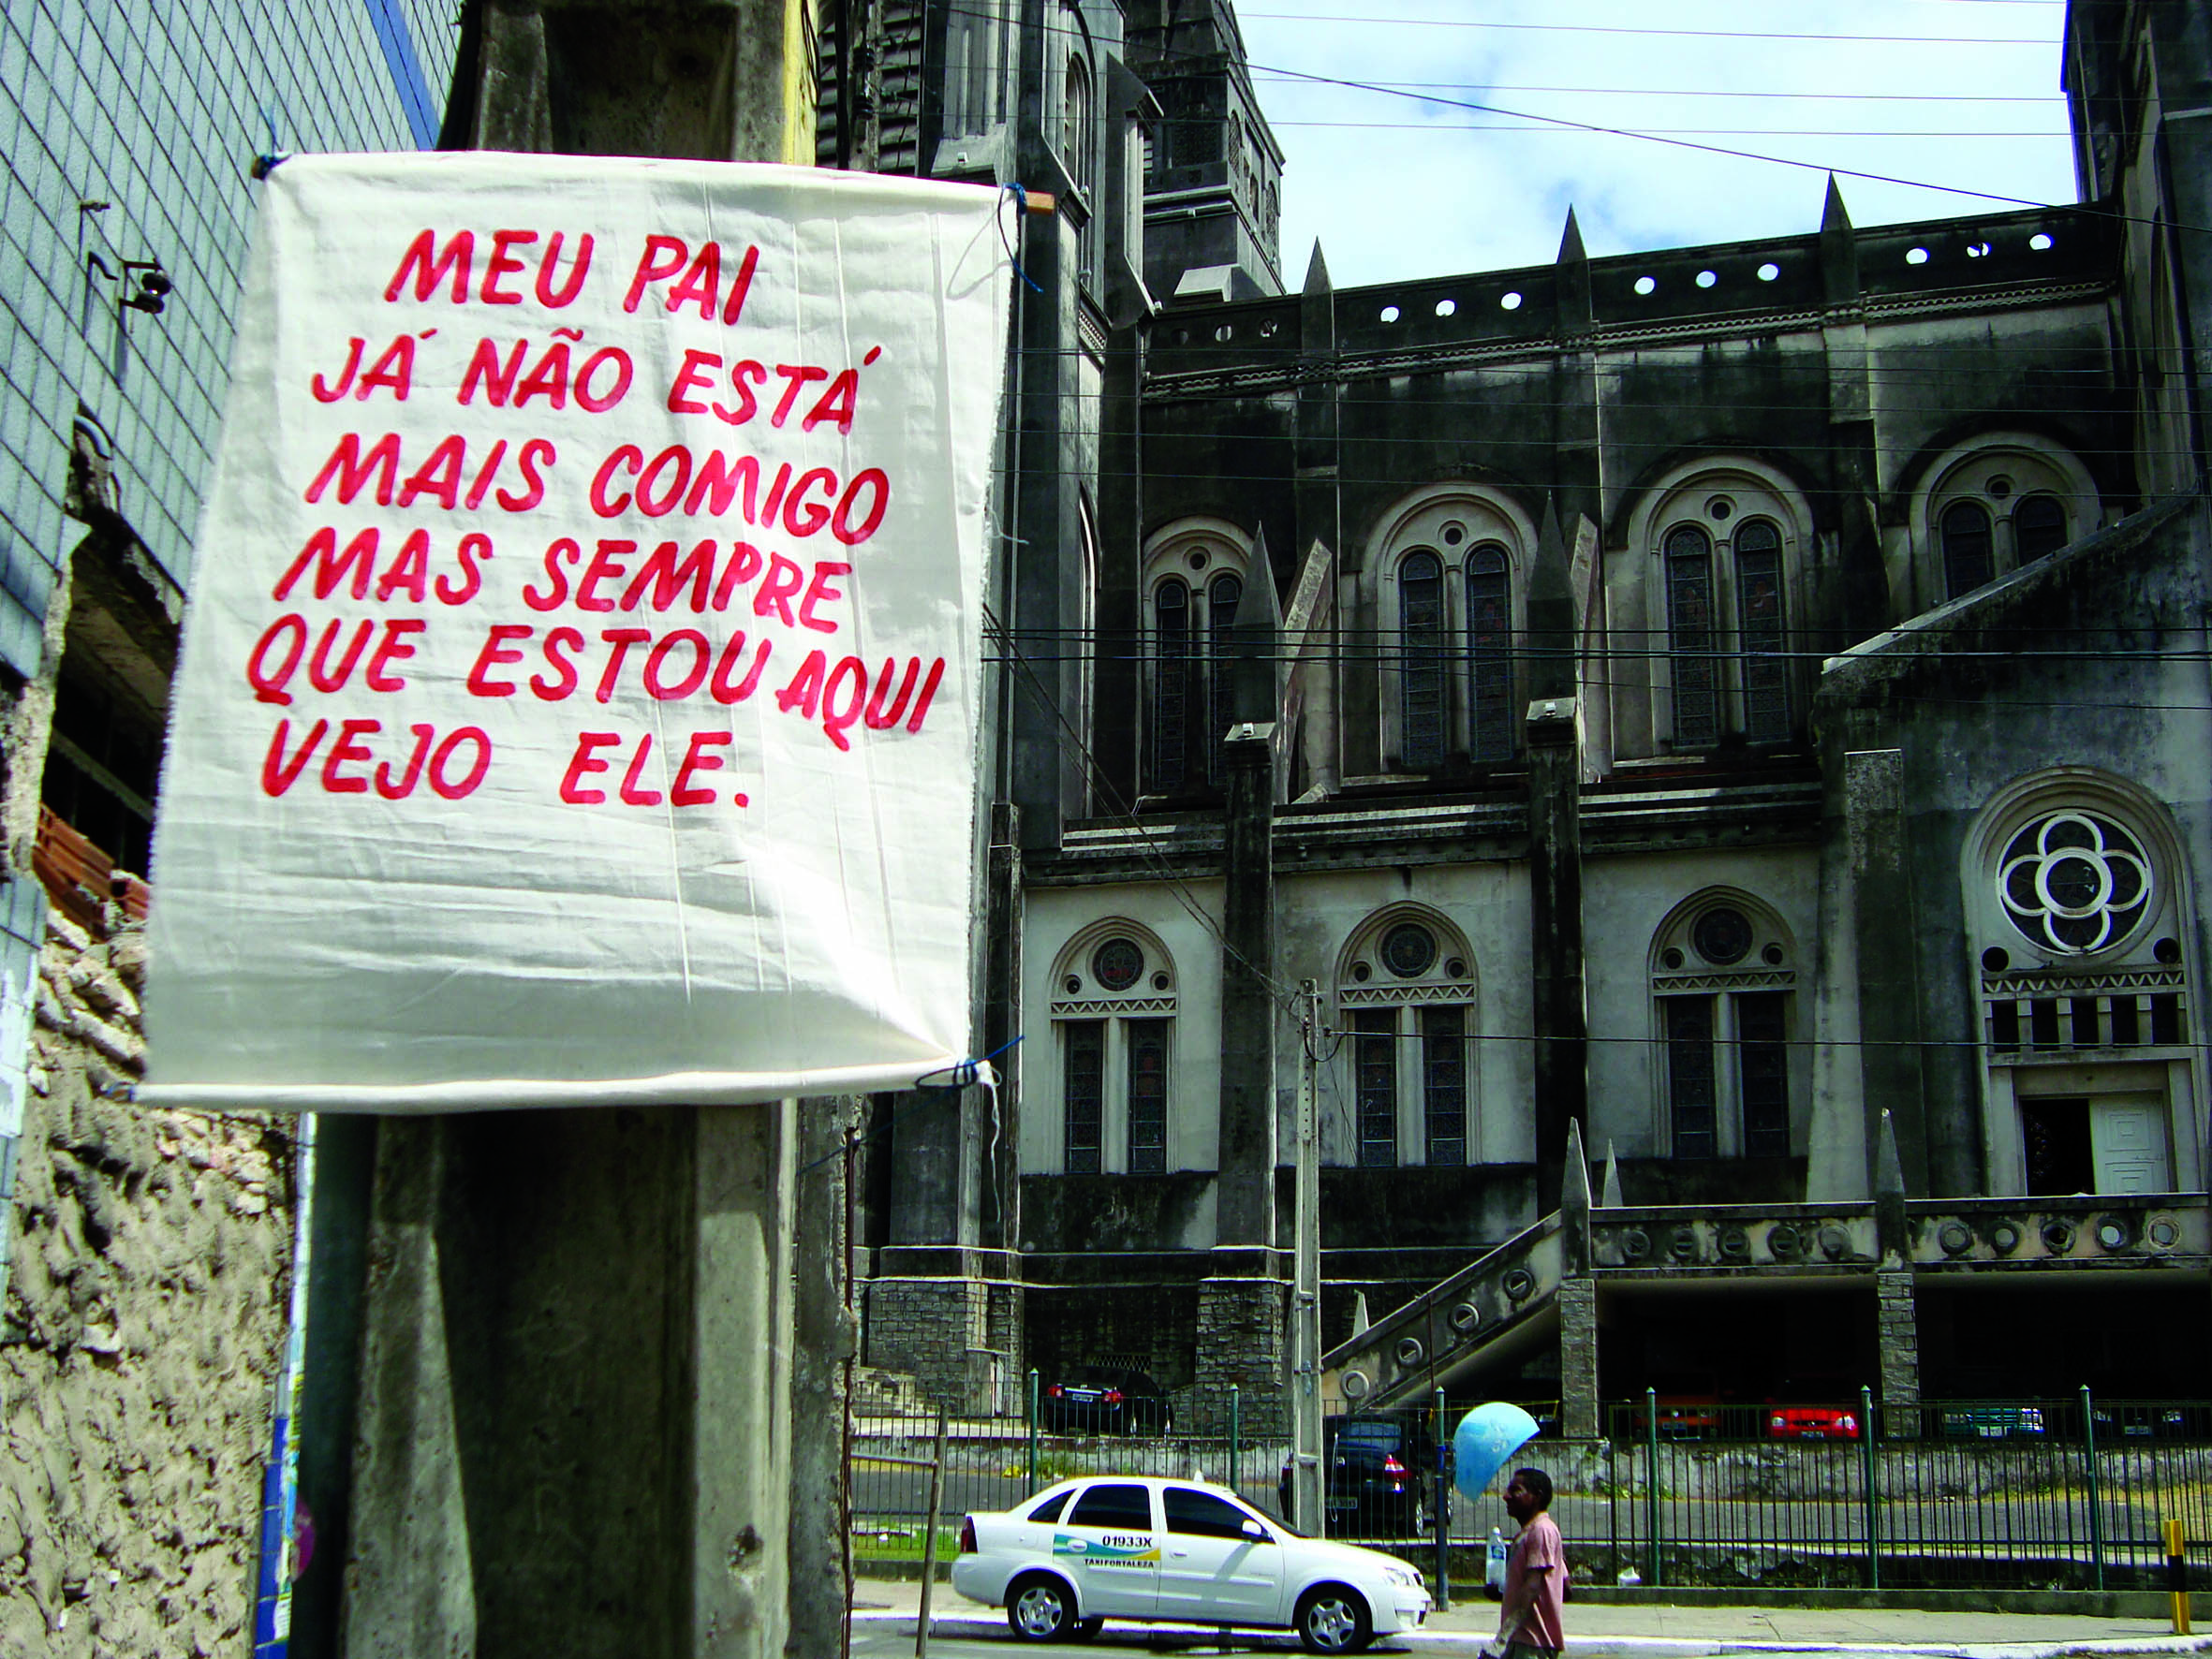 MEU PAI
JÁ NÃO ESTÁ
MAIS COMIGO
MAS SEMPRE
QUE ESTOU AQUI
VEJO ELE.
01933X
TAXI FORTALEZA